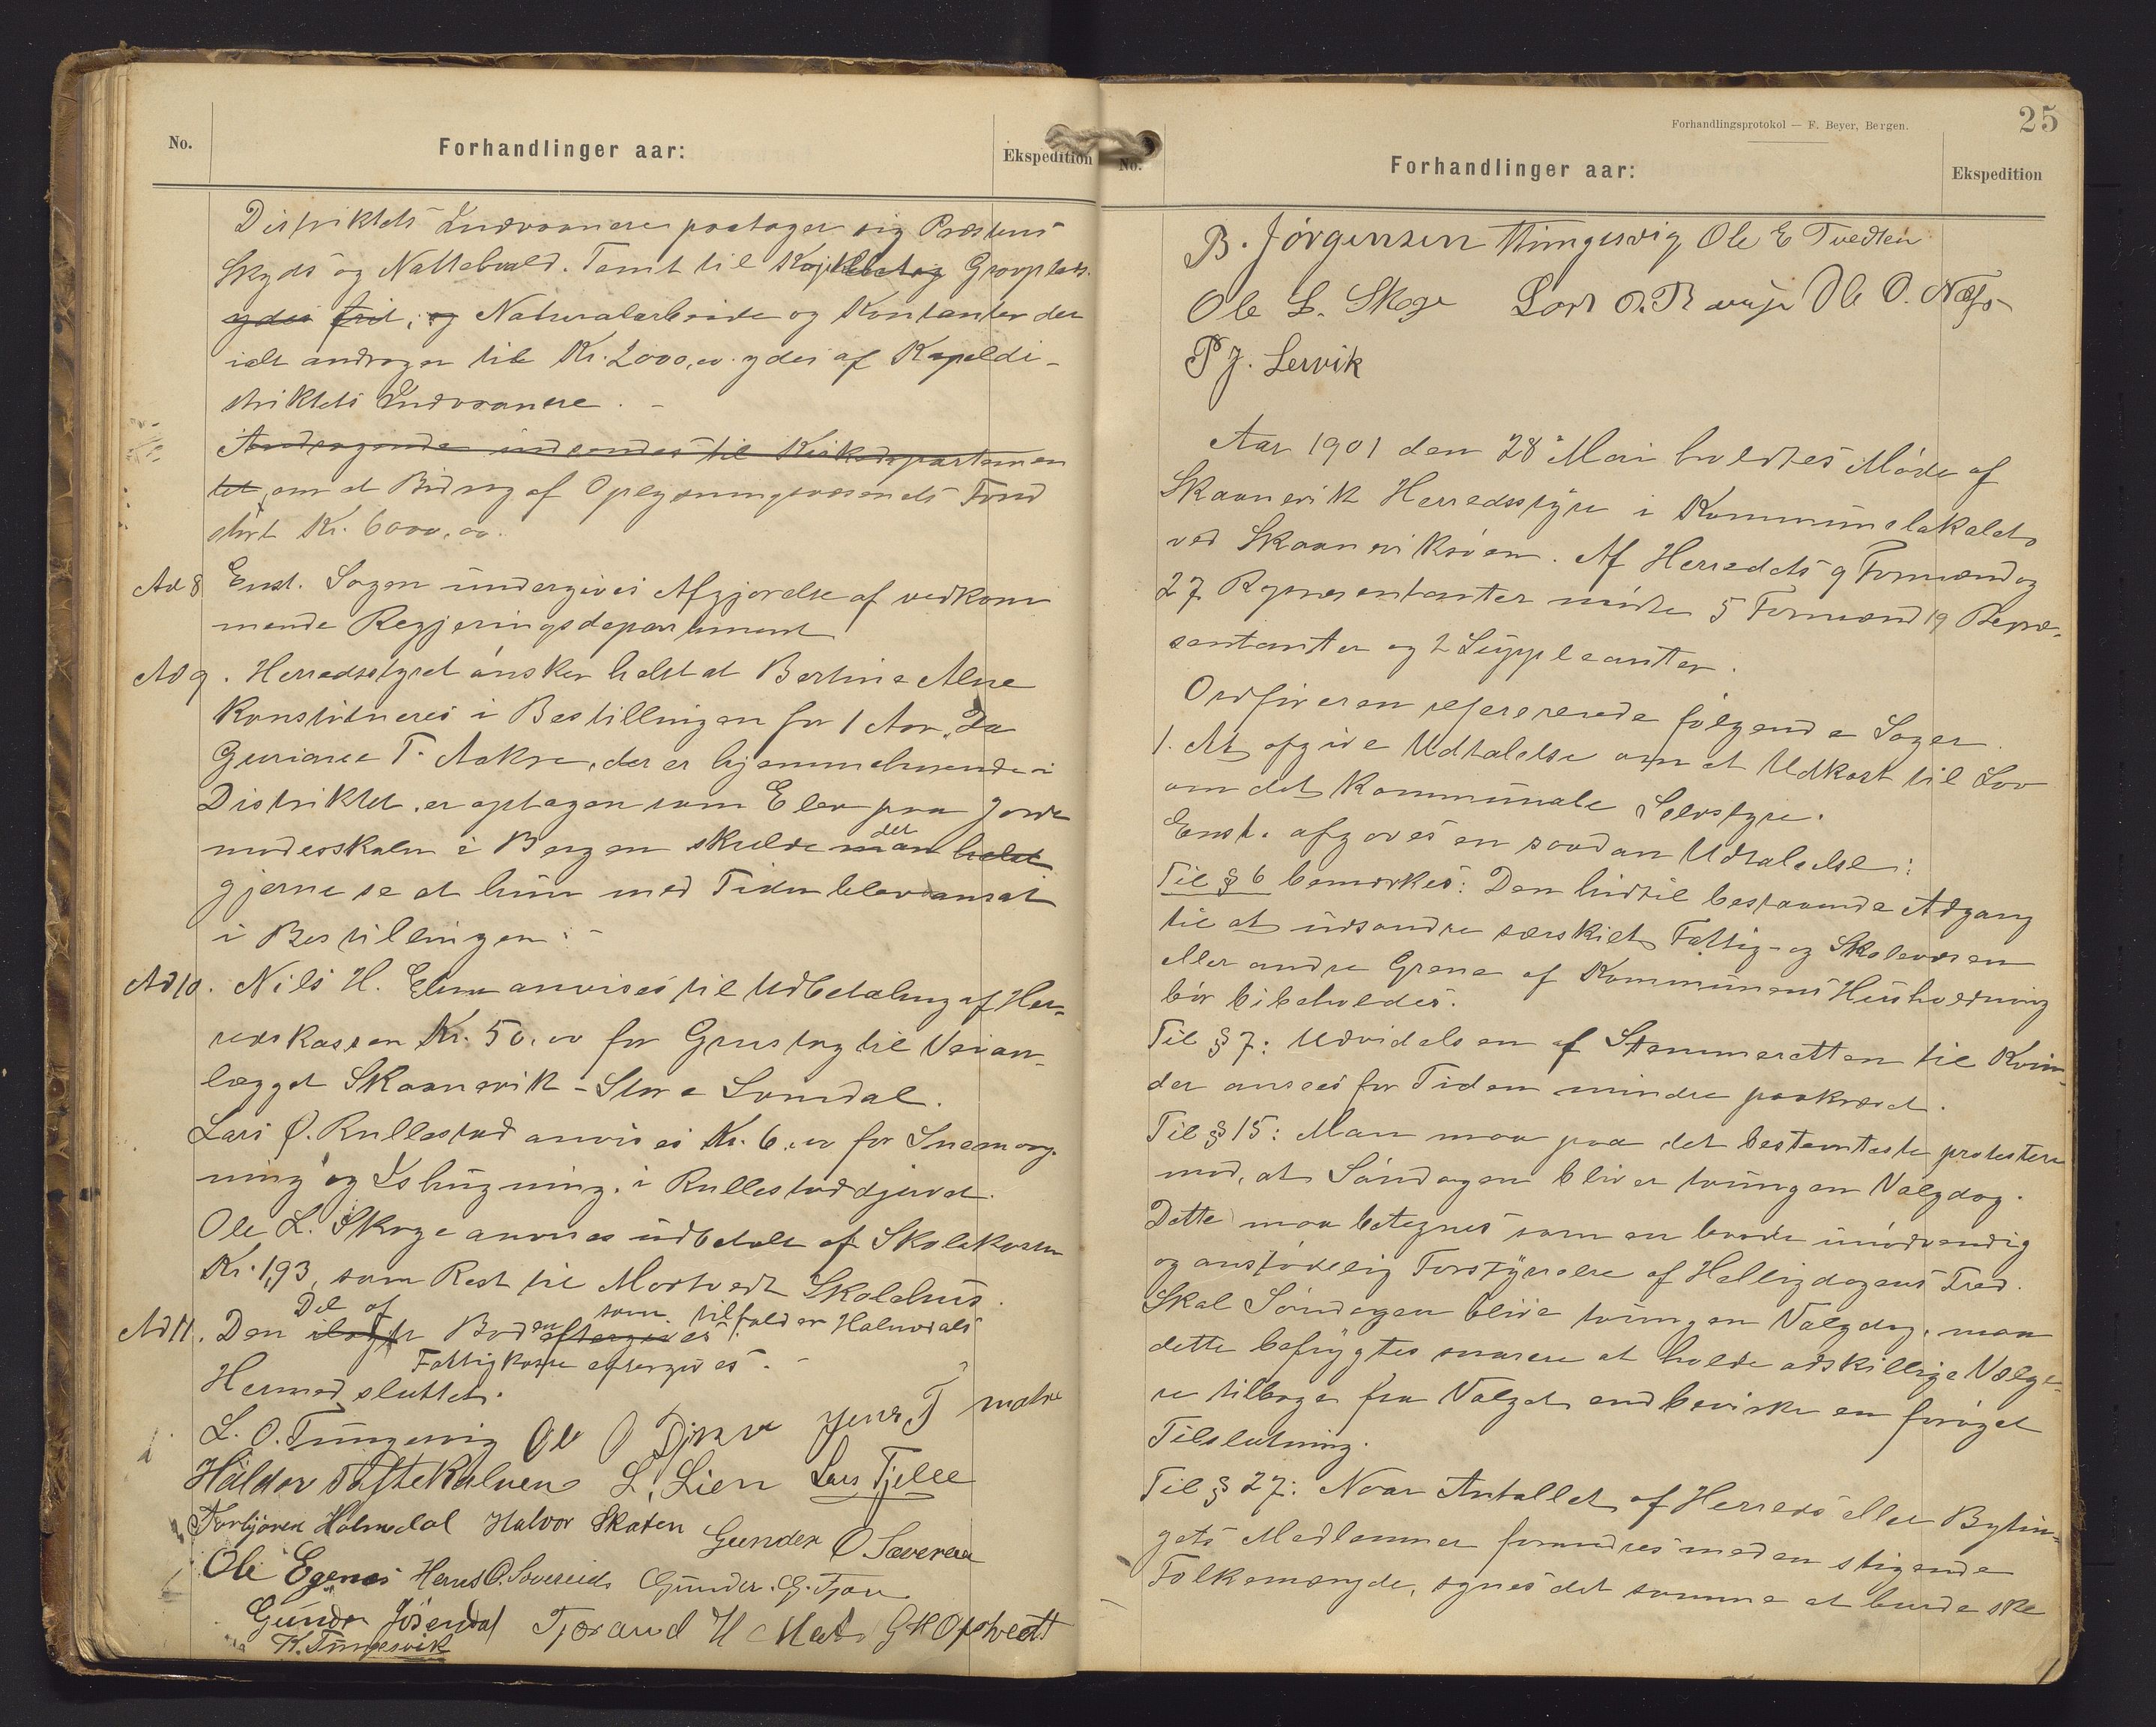 No.
Forhandlinger aar:
Ekspedition
Distriktets Indvaanere paatager sig Præstens
Skyds og Nattehold. Tomt til Gravplads
ydes frit, og Naturalarbeide og Kontanter der
ialt andrager til Kr. 2000,00 ydes af Kapeldi-
striktets Indvaanere. -
Andragende indsendes til Kirkedepartemen
tet, om et Bidrag af Oplysningsvæsenets Fond
stort Kr. 6000,00.
Ad 8 Enst. Sagen undergives Afgjørelse af vedkom
mende Regjeringsdepartement
Ad 9. Herredsstyret ønsker helst at Bertine Alne
Konstitueres i Bestillingen for 1 Aar. Da
Guriane T. Aakre, der er hjemmehørende i
Distriktet, er optagen som Elev paa Jorde
moderskolen i Bergen skulde man helst
det
gjerne se at hun med Tiden blev ansat
i Bestillingen: -
Ad 10. Nils H. anvises til Udbetaling af Her-
redskassen Kr. 50,00 for Grustag til Veian-
lægget Skaanevik - Store Somdal.
Lars O. Rullestad anvises Kr. 6,00 for Snemog-
ning og Ishugning i Rullestadjuvet.
Ole L. Skoge anvises udbetalt af Skolekassen
Kr. 1,93, som Rest til Mortvedt Skolehus.
Del af som tilfalder Holmedals
Ad 11. Den Boden eftergives.
Fattigkasse eftergives. -
Hermed sluttet.
L. O. Tungesvig Ole O Jens T matre
Haldor Toftekalven L. Lien Lars Fjelle
Torbjøren Holmedal Halvor Skaten Gunder O Sævereid
Ole Egenes Herus O. Sævereide Gunder G. Tjou
Gunder Jøsendal Tjeran H Mat. G H Opstvedt
K. Tungesvik
Forhandlingsprotokol — F. Beyer, Bergen.
25
No.
Forhandlinger aar:
Ekspedition
B. Jørgensen Ole E Tvedten
Ole L. Skoge Ole O. Næss
P J. Lervik
Aar 1901 den 28 Mai holdtes Møde af
Skaanevik Herredsstyre i Kommunelokalet
ved Skaaneviksøen. Af Herredets 9 Formænd og
27 Repræsentanter mødte 5 Formænd 19 Repræ-
sentanter og 2 Suppleanter.
Ordføreren refererede følgende Sager.
1. At afgive Udtalelse om et Udkast til Lov
om det kommunale Selvstyre.
Enst. afgoves en saadan Udtalelse:
Til § 6 bemerkes: Den hidtil bestaaende Adgang
til at udsondre særskilt Fattig- og Skolevæsen
eller andre Grene af Kommunens Husholdning
bør bibeholdes.
Til § 7: Udvidelsen af Stemmeretten til Kvin-
der ansees for Tiden mindre paakrævet.
Til § 15: Man maa paa det bestemteste protestere
mod, at Søndagen bliver tvungen Valgdag.
Dette maa betegnes som en baade unødvendig
og anstødelig Forstyrrelse af Helligdagens Fred.
Skal Søndagen blive tvungen Valgdag, maa
dette befrygtes snarere at holde adskillige Vælge-
re tilbage fra Valget end bevirke en forøget
Tilslutning.
Til § 27: Naar Antallet af Herreds eller Bytin-
gets Medlemmer formedres med en stigende
Folkemængde, synes det samme at burde ske